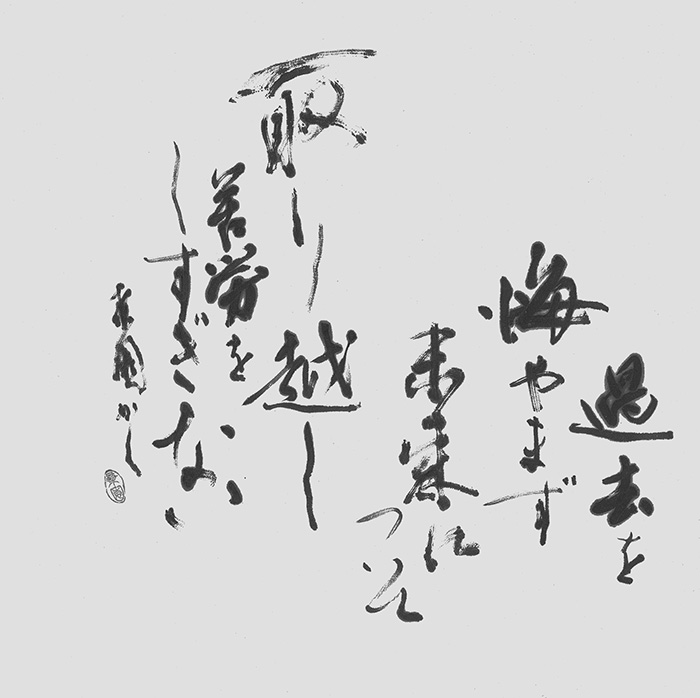 過去を
悔やまず
未来に
ついて
取り越し
苦労を
しすぎない